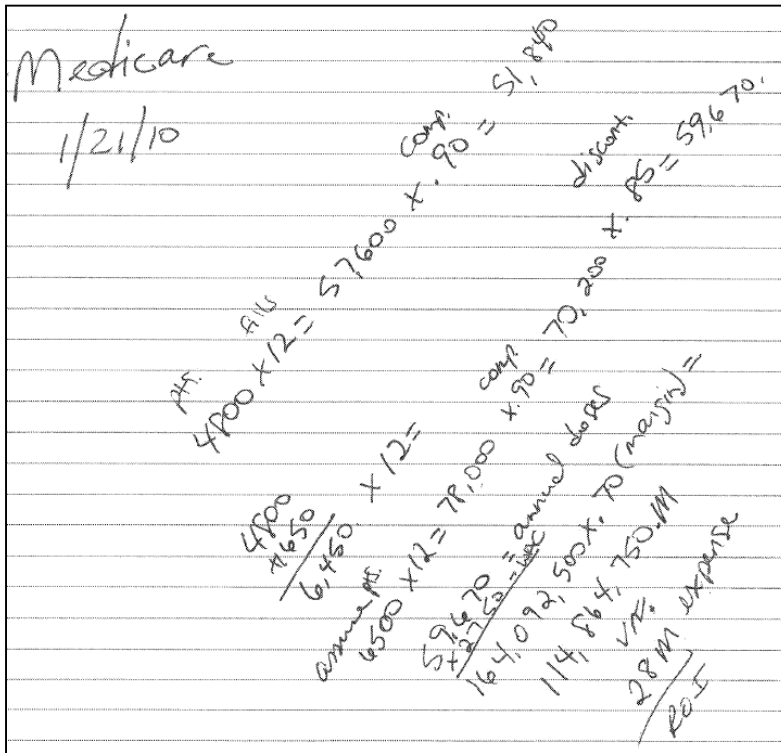 Medicare
1/21/10
pts. fills comp.
4800 x 12 = 57,600 x .90 = 51,840
4800
+1650
6,450 x 12 =
assume pts. comp. discont.
6500 x 12 = 78,000 x .90 = 70,200 x .85 = 59,670.
59,670 = annual doses
x 2750 = WAC
164,092,500 x .70 (margin) =
114,864,750.M
vs.
28M expense
ROI